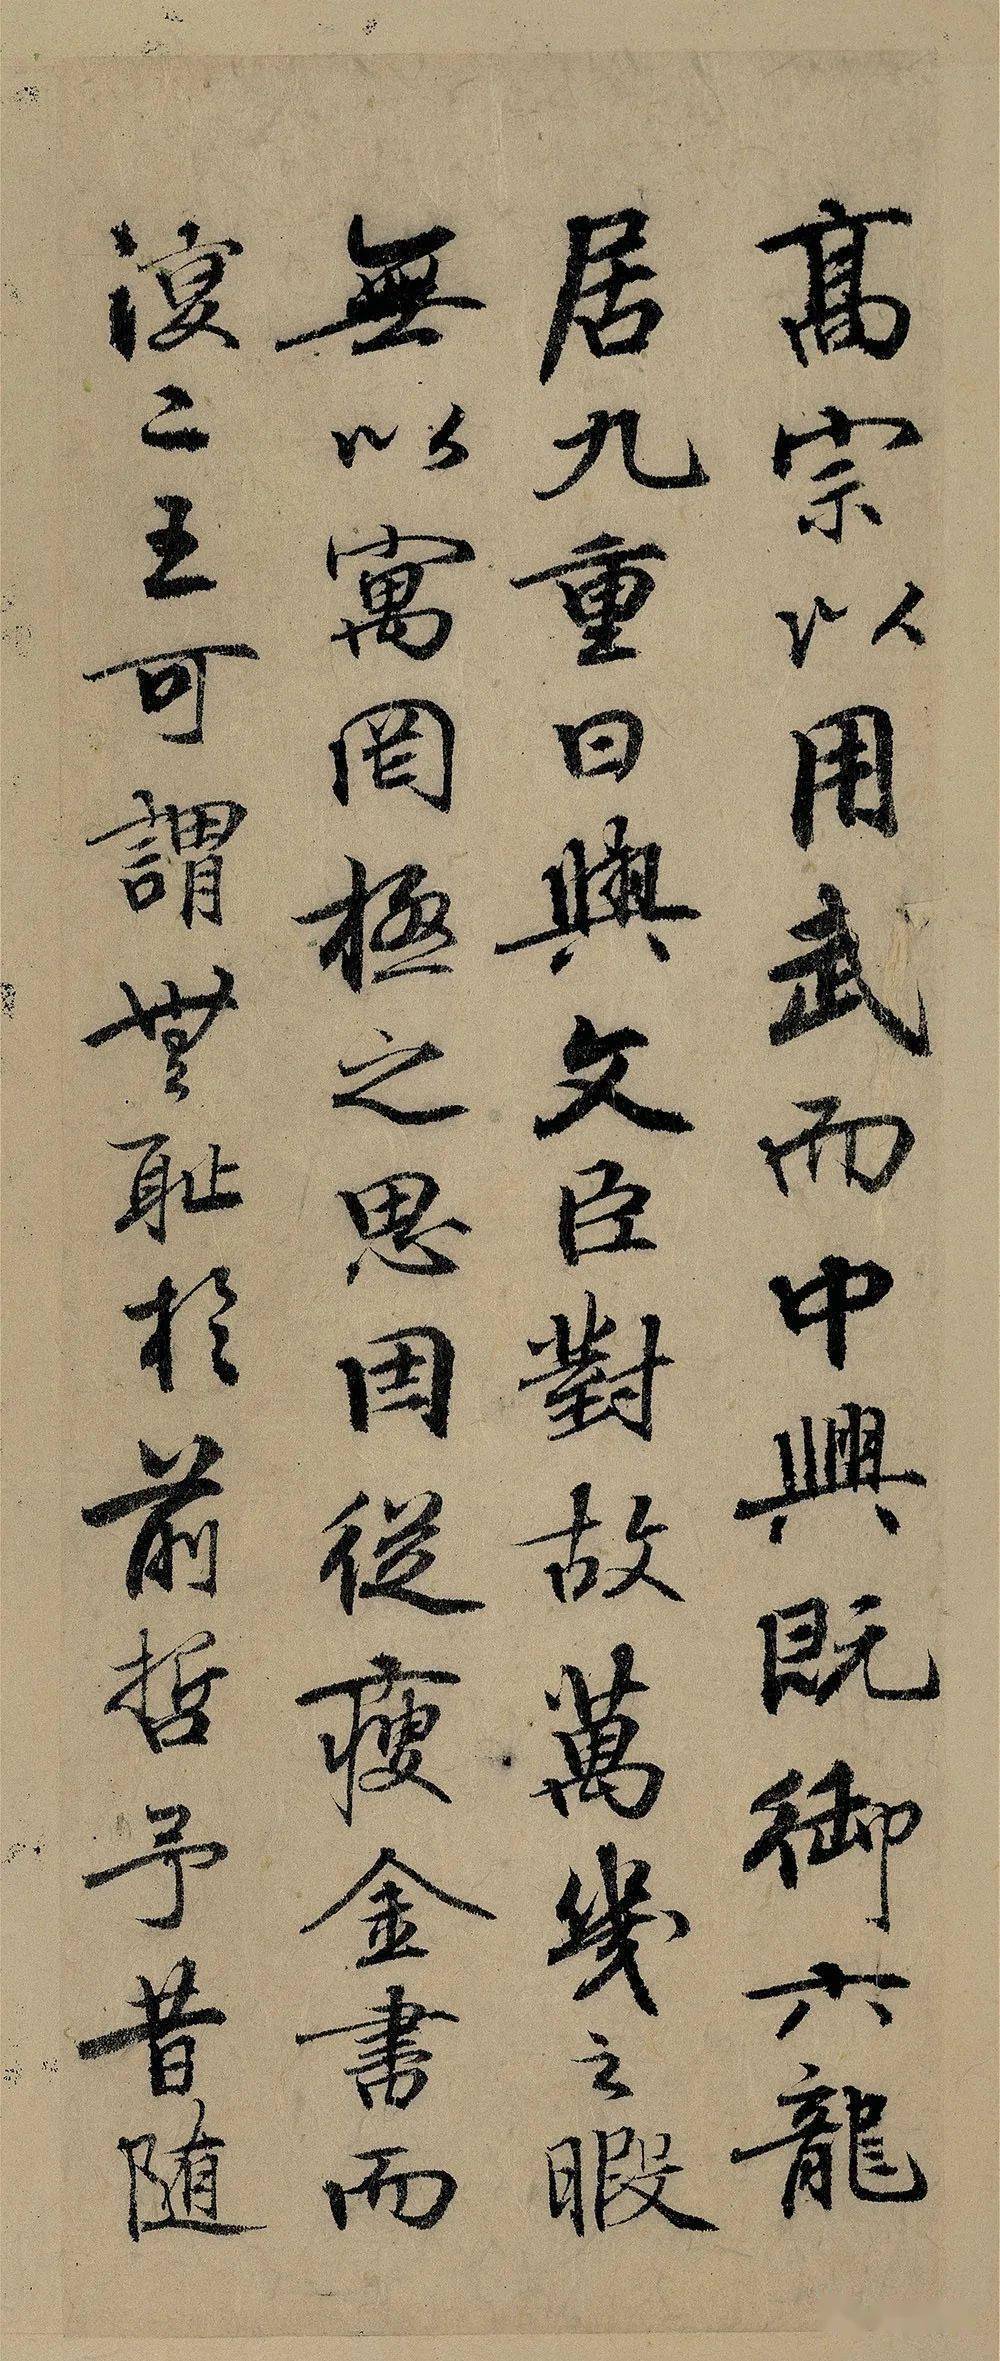 高宗以用武而中興既御六龍
居九重日與文臣對故萬幾之暇
無以寓罔極之思因從瘦金書而
復二王可謂無恥於前哲予昔随